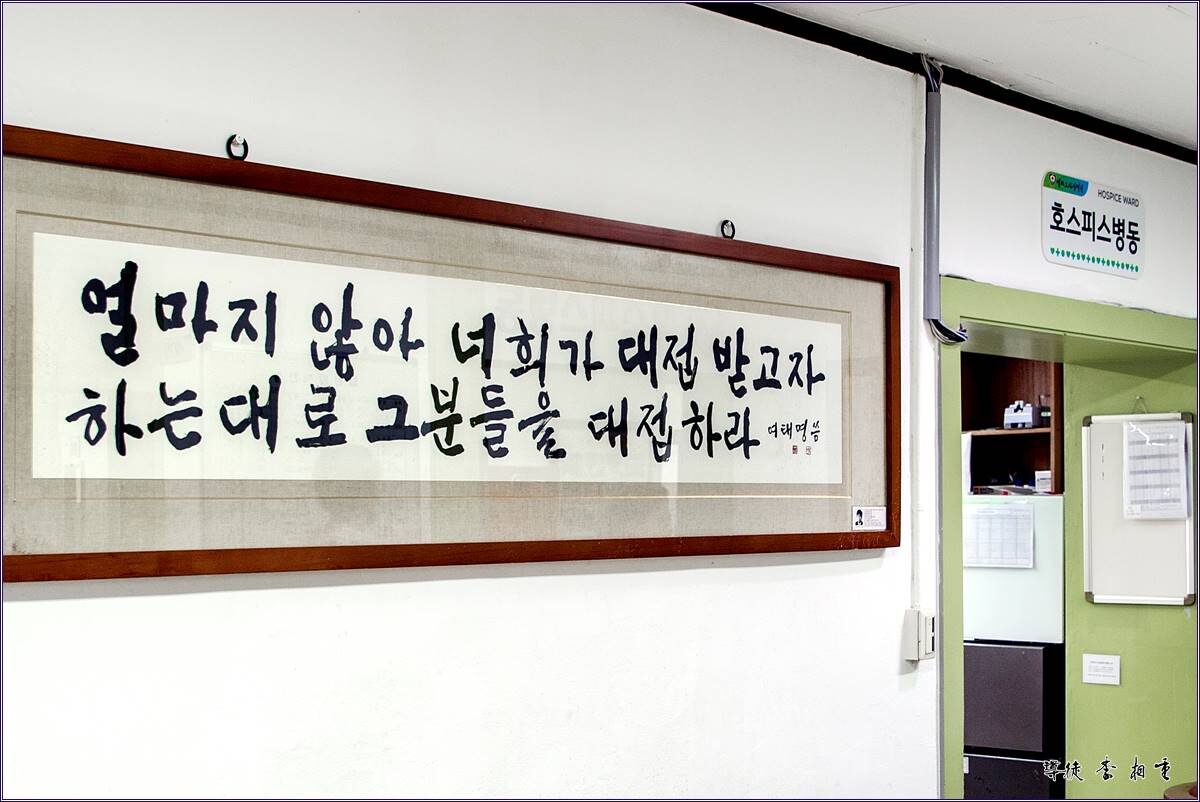 얼마지 않아 너희가 대접 받고자
하는대로 그분들을 대접하라
여태명 씀
HOSPICE WARD
호스피스병동